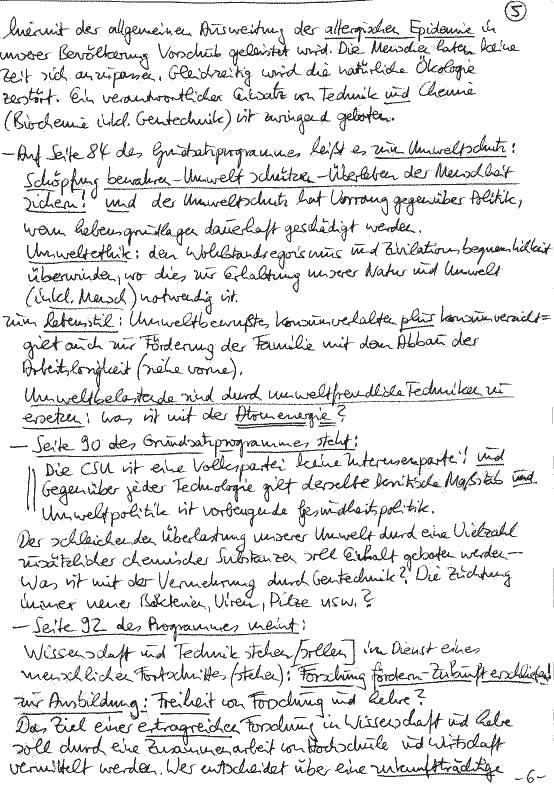 5
hiermit der allgemeinen Ausweitung der allergischen Epidemie in
unserer Bevölkerung Vorschub geleistet wird. Die Menschen haben keine
Zeit sich anzupassen. Gleichzeitig wird die natürliche Ökologie
zerstört. Ein verantwortlicher Einsatz von Technik und Chemie
(Biochemie inkl. Gentechnik) ist zwingend geboten.
- Auf Seite 84 des Grundsatzprogrammes heißt es zum Umweltschutz:
Schöpfung bewahren - Umwelt schützen - Überleben der Menschheit
sichern! und der Umweltschutz hat Vorrang gegenüber Politik,
wenn Lebensgrundlagen dauerhaft geschädigt werden.
Umweltethik: den Wohlstandsegoismus und Zivilationsbequemlichkeit
überwinden, wo dies zur Erhaltung unserer Natur und Umwelt
(inkl. Mensch) notwendig ist.
zum Lebensstil: Umweltbewußtes Konsumverhalten plus Konsumverzicht =
gielt auch zur Förderung der Familie mit dem Abbau der
Arbeitslosigkeit (siehe vorne).
Umweltbelastende sind durch umweltfreundliche Techniken zu
ersetzen: was ist mit der Atomenergie?
- Seite 90 des Grundsatzprogrammes steht:
Die CSU ist eine Volkspartei keine Interessenpartei! und
Gegenüber jeder Technologie gilt derselbe kritische Maßstab und
Umweltpolitik ist vorbeugende Gesundheitspolitik.
Der schleichenden Überlastung unserer Umwelt durch eine Vielzahl
zusätzlicher chemischer Substanzen soll Einhalt geboten werden -
Was ist mit der Vermehrung durch Gentechnik? Die Züchtung
immer neuer Bakterien, Viren, Pilze usw.?
- Seite 92 des Programmes meint:
Wissenschaft und Technik stehen [sollen] im Dienst eines
menschlichen Fortschrittes (stehen): Forschung fördern - Zukunft erschließen!
zur Ausbildung: Freiheit von Forschung und Lehre?
Das Ziel einer ertragreichen Forschung in Wissenschaft und Lehre
soll durch eine Zusammenarbeit von Hochschule und Wirtschaft
vermittelt werden. Wer entscheidet über eine zukunftsträchtige
- 6 -